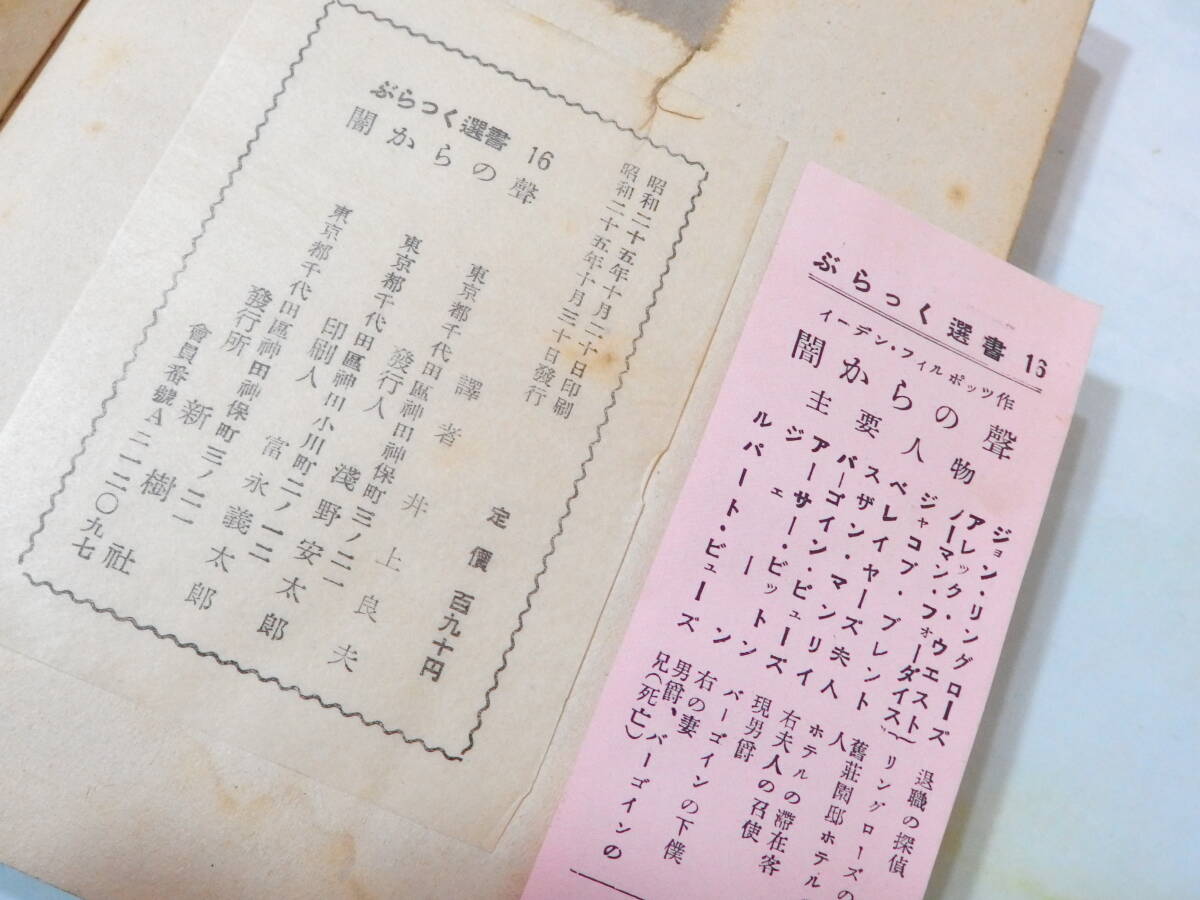 ぶらつく選書 16
闇からの聲
昭和二十五年十月二十日印刷
昭和二十五年十月三十日發行
定價 百九十円
譯者 井上良夫
東京都千代田區神田神保町三ノ二一
發行人 淺野安太郎
東京都千代田區神田小川町二ノ一二
印刷人 富永義太郎
東京都千代田區神田神保町三ノ二一
發行所 新樹社
會員番號A二一二〇九七
ぶらっく選書 16
イーデン・フィルポッツ作
闇からの聲
主要人物
ジョン・リングローズ 退職の探偵
アレック・ウエスト
ノーマン・フォーダイス リングローズの
人
ジャコブ・ブレント 舊莊園邸ホテル
ベレイヤーズ夫人 ホテルの滯在客
スザン・マンリイ 右夫人の召使
バーゴイン・ビューズ 現男爵
アーサー・ビットン バーゴインの下僕
ジェーン 右の妻
ルパート・ビューズ 男爵、バーゴインの
兄(死亡)